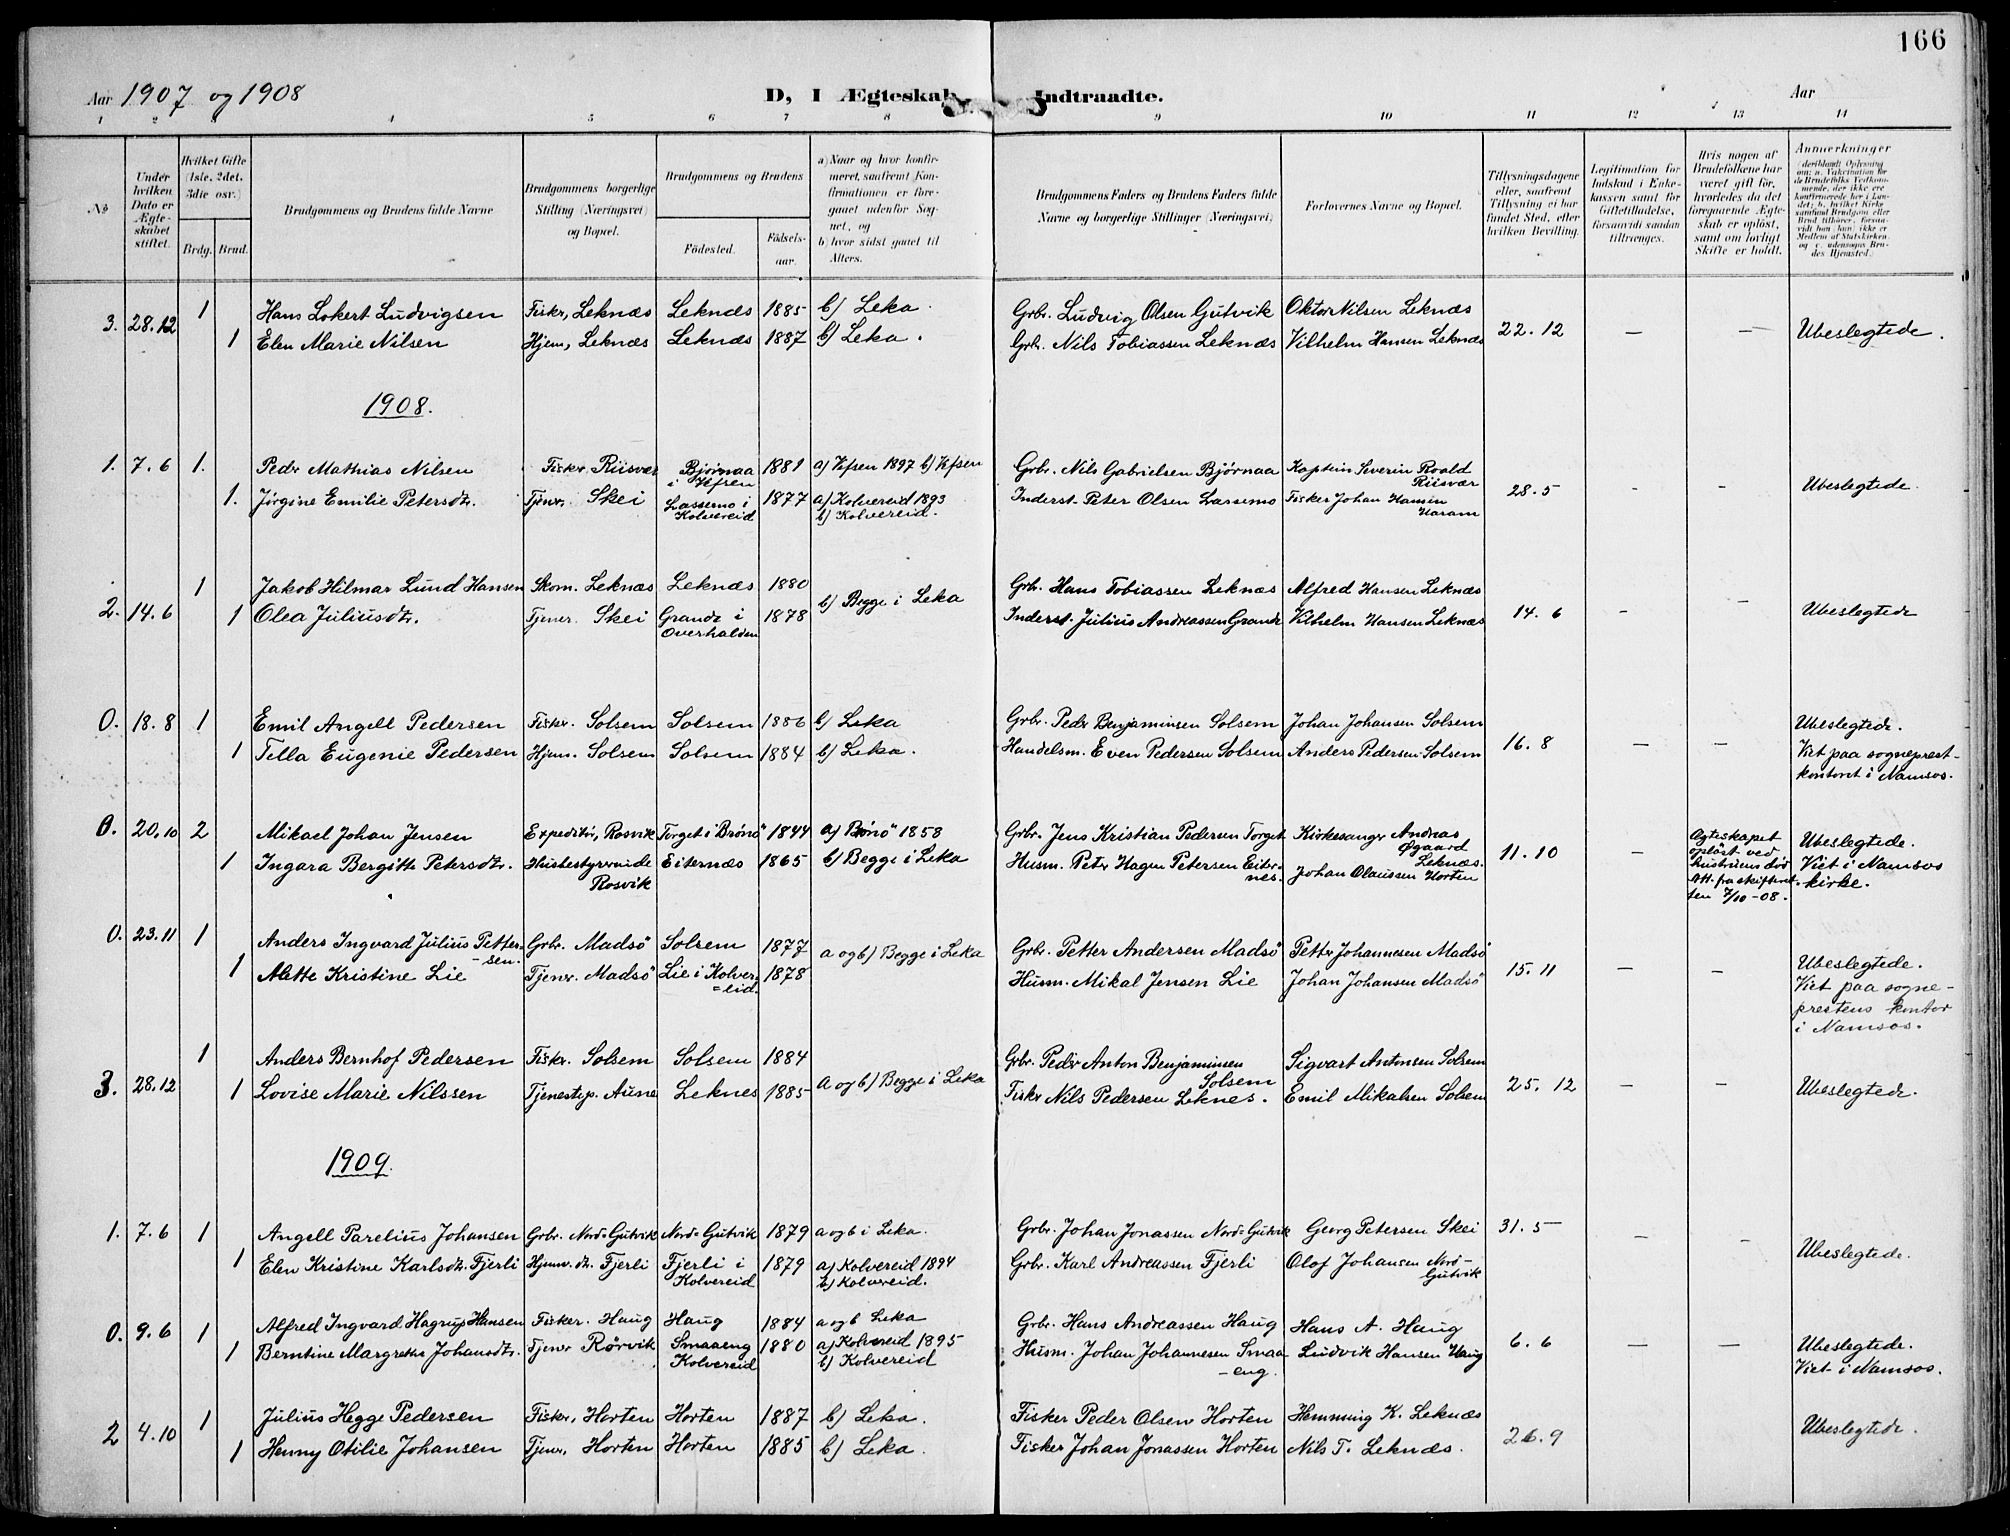 166
Aar 1907 og 1908
D, I Ægteskab Indtraadte.
Aar
1 2 3 4 5 6 7 8 9 10 11 12 13 14
No
Under hvilken Dato er Ægteskabet stiftet.
Hvilket Gifte (1ste, 2det, 3die osv.)
Brdg. Brud.
Brudgommens og Brudens fulde Navne
Brudgommens borgerlige Stilling (Næringsvei) og Bopæl.
Brudgommens og Brudens
Fødested. Fødselsaar.
a) Naar og hvor konfirmeret, saafremt Konfirmationen er foregaaet udenfor Sognet, og
b) hvor sidst gaaet til Alters.
Brudgommens Faders og Brudens Faders fulde Navne og borgerlige Stillinger (Næringsvei)
Forlovernes Navne og Bopæl.
Tillysningsdagene eller, saafremt Tillysning ei har fundet Sted, efter hvilken Bevilling.
Legitimation for Indskud i Enkekassen samt for Giftetilladelse, forsaavidt saadan tiltrænges.
Hvis nogen af Brudefolkene har været gift før, hvorledes da det foregaaende Ægteskab er opløst, samt om lovligt Skifte er holdt.
Anmerkninger (deriblandt Oplysning om: a. Vakcination for de Brudefolks Vedkommende, der ikke ere konfirmerede her i Landet; b. hvilket Kirkesamfund Brudgom eller Brud tilhører, forsaavidt han (hun) ikke er Medlem af Statskirken og c. udensogns Brudes Hjemsted.)
3. 28.12 1 Hans Lokert Ludvigsen Fiskr, Leknæs Leknæs 1885 b) Leka. Grbr. Ludvig Olsen Gutvik Oktor Nilsen Leknæs
1 Elen Marie Nilsen Hjem, Leknæs Leknæs 1887 b) Leka. Grbr. Nils Tobiassen Leknæs Vilhelm Hansen Leknæs 22.12 — — Ubeslegtede.
1908.
1. 7.6 1. Pedr Mathias Nilsen Fiskr. Riisvær Bjørnaa i Vefsen 1881 a) Vefsen 1897 b) Vefsen Grbr. Nils Gabrielsen Bjørnaa Kaptein Severin Roald Riisvær
1. Jørgine Emilie Petersdtr. Tjenr. Skei Lassemo i Kolvereid 1877 a) Kolvereid 1893 b) Kolvereid. Inderst. Peter Olsen Lassemo Fisker Johan Hansen Haram 28.5 – – Ubeslegtede.
2. 14.6 1 Jakob Hilmar Lund Hansen Skom. Leknæs Leknæs 1880 b) Begge i Leka Grbr. Hans Tobiassen Leknæs Alfred Hansen Leknæs
1 Olea Juliusdtr. Tjener. Skei Grande i Overhalden 1878 Inderst. Julius Andreassen Grande Vilhelm Hansen Leknæs 14.6 – – Ubeslegtede
0. 18.8 1 Emil Angell Pedersen Fiskr. Solsem Solsem 1886 b) Leka Grbr. Pedr Benjaminsen Solsem Johan Johansen Solsem
1 Tella Eugenie Pedersen Hjem. Solsem Solsem 1884 b) Leka. Handelsm. Even Pedersen Solsem Anders Pedersen Solsem 16.8 — — Ubeslegtede. Viet paa sogneprestkontoret i Namsos.
0. 20.10 2 Mikael Johan Jensen Expeditør, Rosvik Torget i Brønø 1844 a) Brønø 1858 Grbr. Jens Kristian Pedersen Torget Kirkesangr Andreas Øgaard Leknæs.
1 Ingara Bergitte Petersdtr. Husbestyrerinde Rosvik Eiternæs 1865 b) Begge i Leka Husm. Petr Hagen Petersen Eiternes. Johan Olaussen Horten 11.10 — Egteskapet opløst ved hustruens død Att. fra skifteretten 7/10-08. Ubeslegtede. Viet i Namsos kirke.
0. 23.11 1 Anders Ingvard Julius Pettersen. Grbr. Madsö Solsem 1877 a og b) Begge i Leka Grbr. Petter Andersen Madsö Petter Johannesen Madsö
1 Alette Kristine Lie Tjenr. Madsö Lie i Kolvereid. 1878 Husm. Mikal Jensen Lie Johan Johansen Madsö 15.11 – – Ubeslegtede. Viet paa sogneprestens kontor i Namsos.
3. 28.12 1 Anders Bernhof Pedersen Fiskr. Solsem Solsem 1884 a og b) Begge i Leka Grbr. Peder Anton Benjaminsen Solsem Sigvart Antonsen Solsem
1 Lovise Marie Nilssen Tjenestep. Aune Leknes 1885 Fiskr Nils Pedersen Leknes. Emil Mikalsen Solsem 25.12 – – Ubeslegtede.
1909.
1. 7.6 1 Angell Parelius Johansen Grbr. Nord-Gutvik Nord-Gutvik 1879 a og b i Leka. Grbr. Johan Jonassen Nord-Gutvik Georg Petersen Skei 31.5
1 Elen Kristine Karlsdtr. Fjerli Hjemv. dtr. Fjerli Fjerli i Kolvereid 1879 a) Kolvereid 1894 b) Kolvereid. Grbr. Karl Andreassen Fjerli Olaf Johansen Nord-Gutvik – – Ubeslegtede.
0. 9.6 1 Alfred Ingvard Hagrup Hansen Fisker. Haug Haug 1884 a og b Leka Grbr. Hans Andreassen Haug Hans A. Haug
1 Berntine Margrethe Johansdtr. Tjenr Rørvik Smaaeng Kolvereid 1880 a) Kolvereid 1895 b) Kolvereid Husm. Johan Johannesen Smaaeng. Ludvik Hansen Haug 6.6 — — Ubeslegtede. Viet i Namsos.
2 4.10 1 Julius Hegge Pedersen Fiskr, Horten Horten 1887 b) Leka. Fisker Peder Olsen Horten Hemming K. Leknæs
1 Henny Otilie Johansen Tjenr, Horten Horten 1885 b) Leka. Fisker Johan Jonassen Horten Nils T. Leknæs. 26.9 Ubeslegtede.